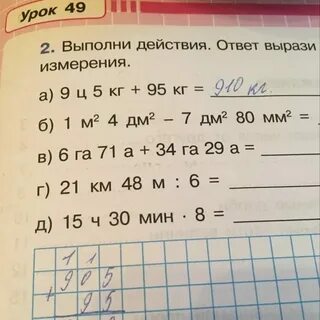 Урок 49
2. Выполни действия. Ответ вырази
измерения.
а) 9 ц 5 кг + 95 кг = 910 кг.
б) 1 м² 4 дм² – 7 дм² 80 мм² =
в) 6 га 71 а + 34 га 29 а =
г) 21 км 48 м : 6 =
д) 15 ч 30 мин · 8 =
1 1
905
+ 95